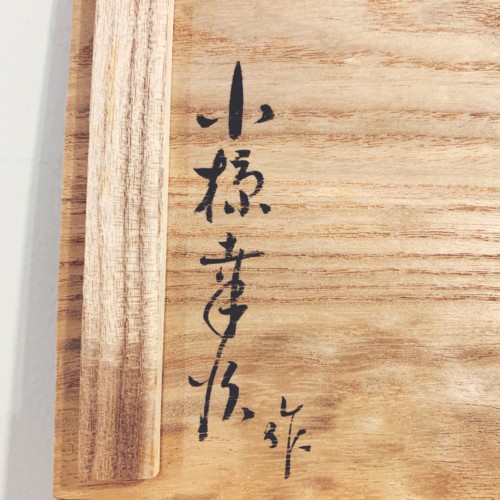 小椋幸治 作